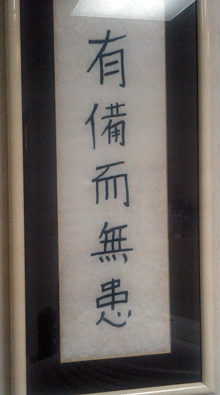 有備而無患